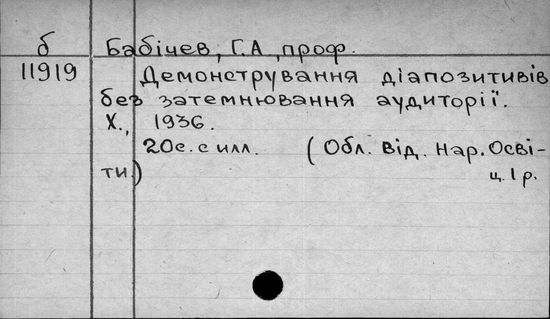 б Бабічев, Г.А., проф.
11919 Демонстрування діапозитивів
без затемнювання аудиторії.
Х., 1936.
20с. с илл. (Обл. від. Нар. Осві-
ти) ц. 1 р.